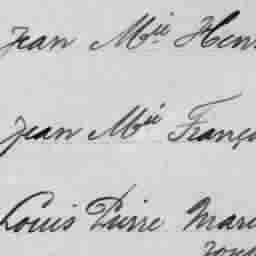 Jean Mie Hen
Jean Mie Franç
Louis Pierre Mari